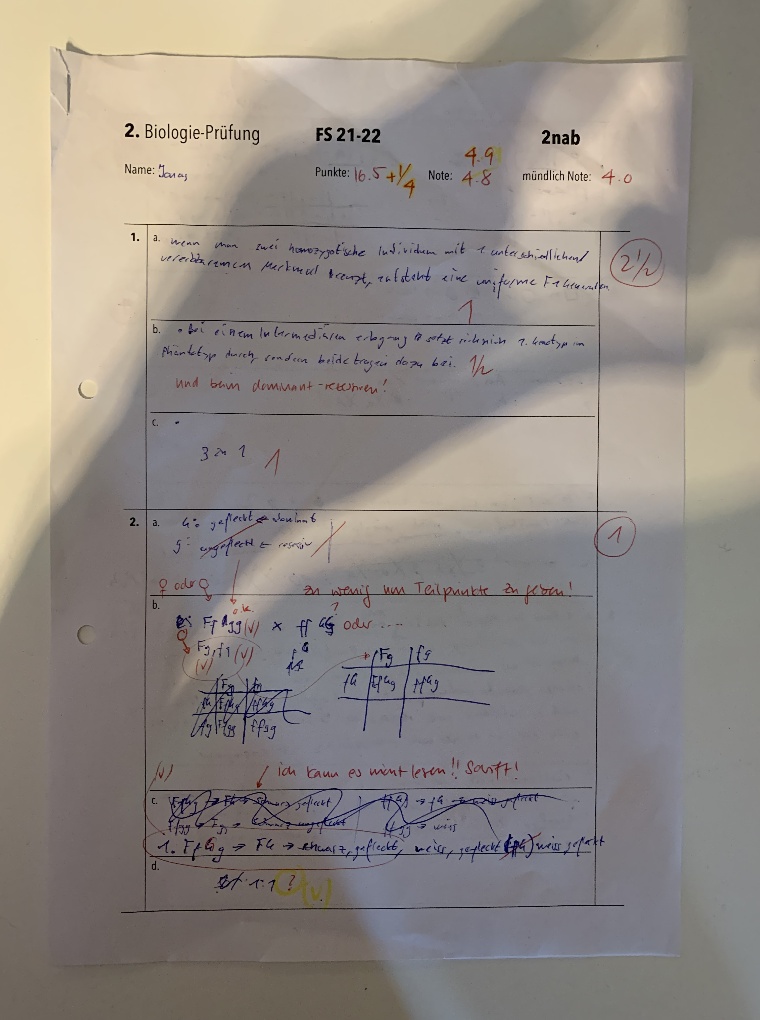 2. Biologie-Prüfung FS 21-22 2nab
4.9
Name: Jonas Punkte: 16.5 + 1/4 Note: 4.8 mündlich Note: 4.0
1. a. wenn man zwei homozygotische Individuen mit 1 unterschiedlichen 2 1/2
vererbbaren Merkmal kreuzt, entsteht eine uniforme F1 Generation
1
b. • Bei einem Intermediären erbgang setzt sich nich 1. Genotyp im
Phänotyp durch sondern beide tragen dazu bei. 1/2
und beim dominant-rezessiven!
c. •
3 zu 1 1
2. a. G: gefleckt dominant 1
g: ungefleckt
♀ oder ♀ zu wenig um Teilpunkte zu geben!
b. o.k. ?
Ff gg (v) x ff GG oder ....
Fg, fg (v)
Fg fg
fG FfGg ffGg
(v) ich kann es nicht lesen!! Schrift!
c. schwarz gefleckt → fG → weiss gefleckt
→ weiss
1. FfGg → FG → schwarz, gefleckt, weiss, gefleckt weiss gefleckt
d.
1:1 ? (v)